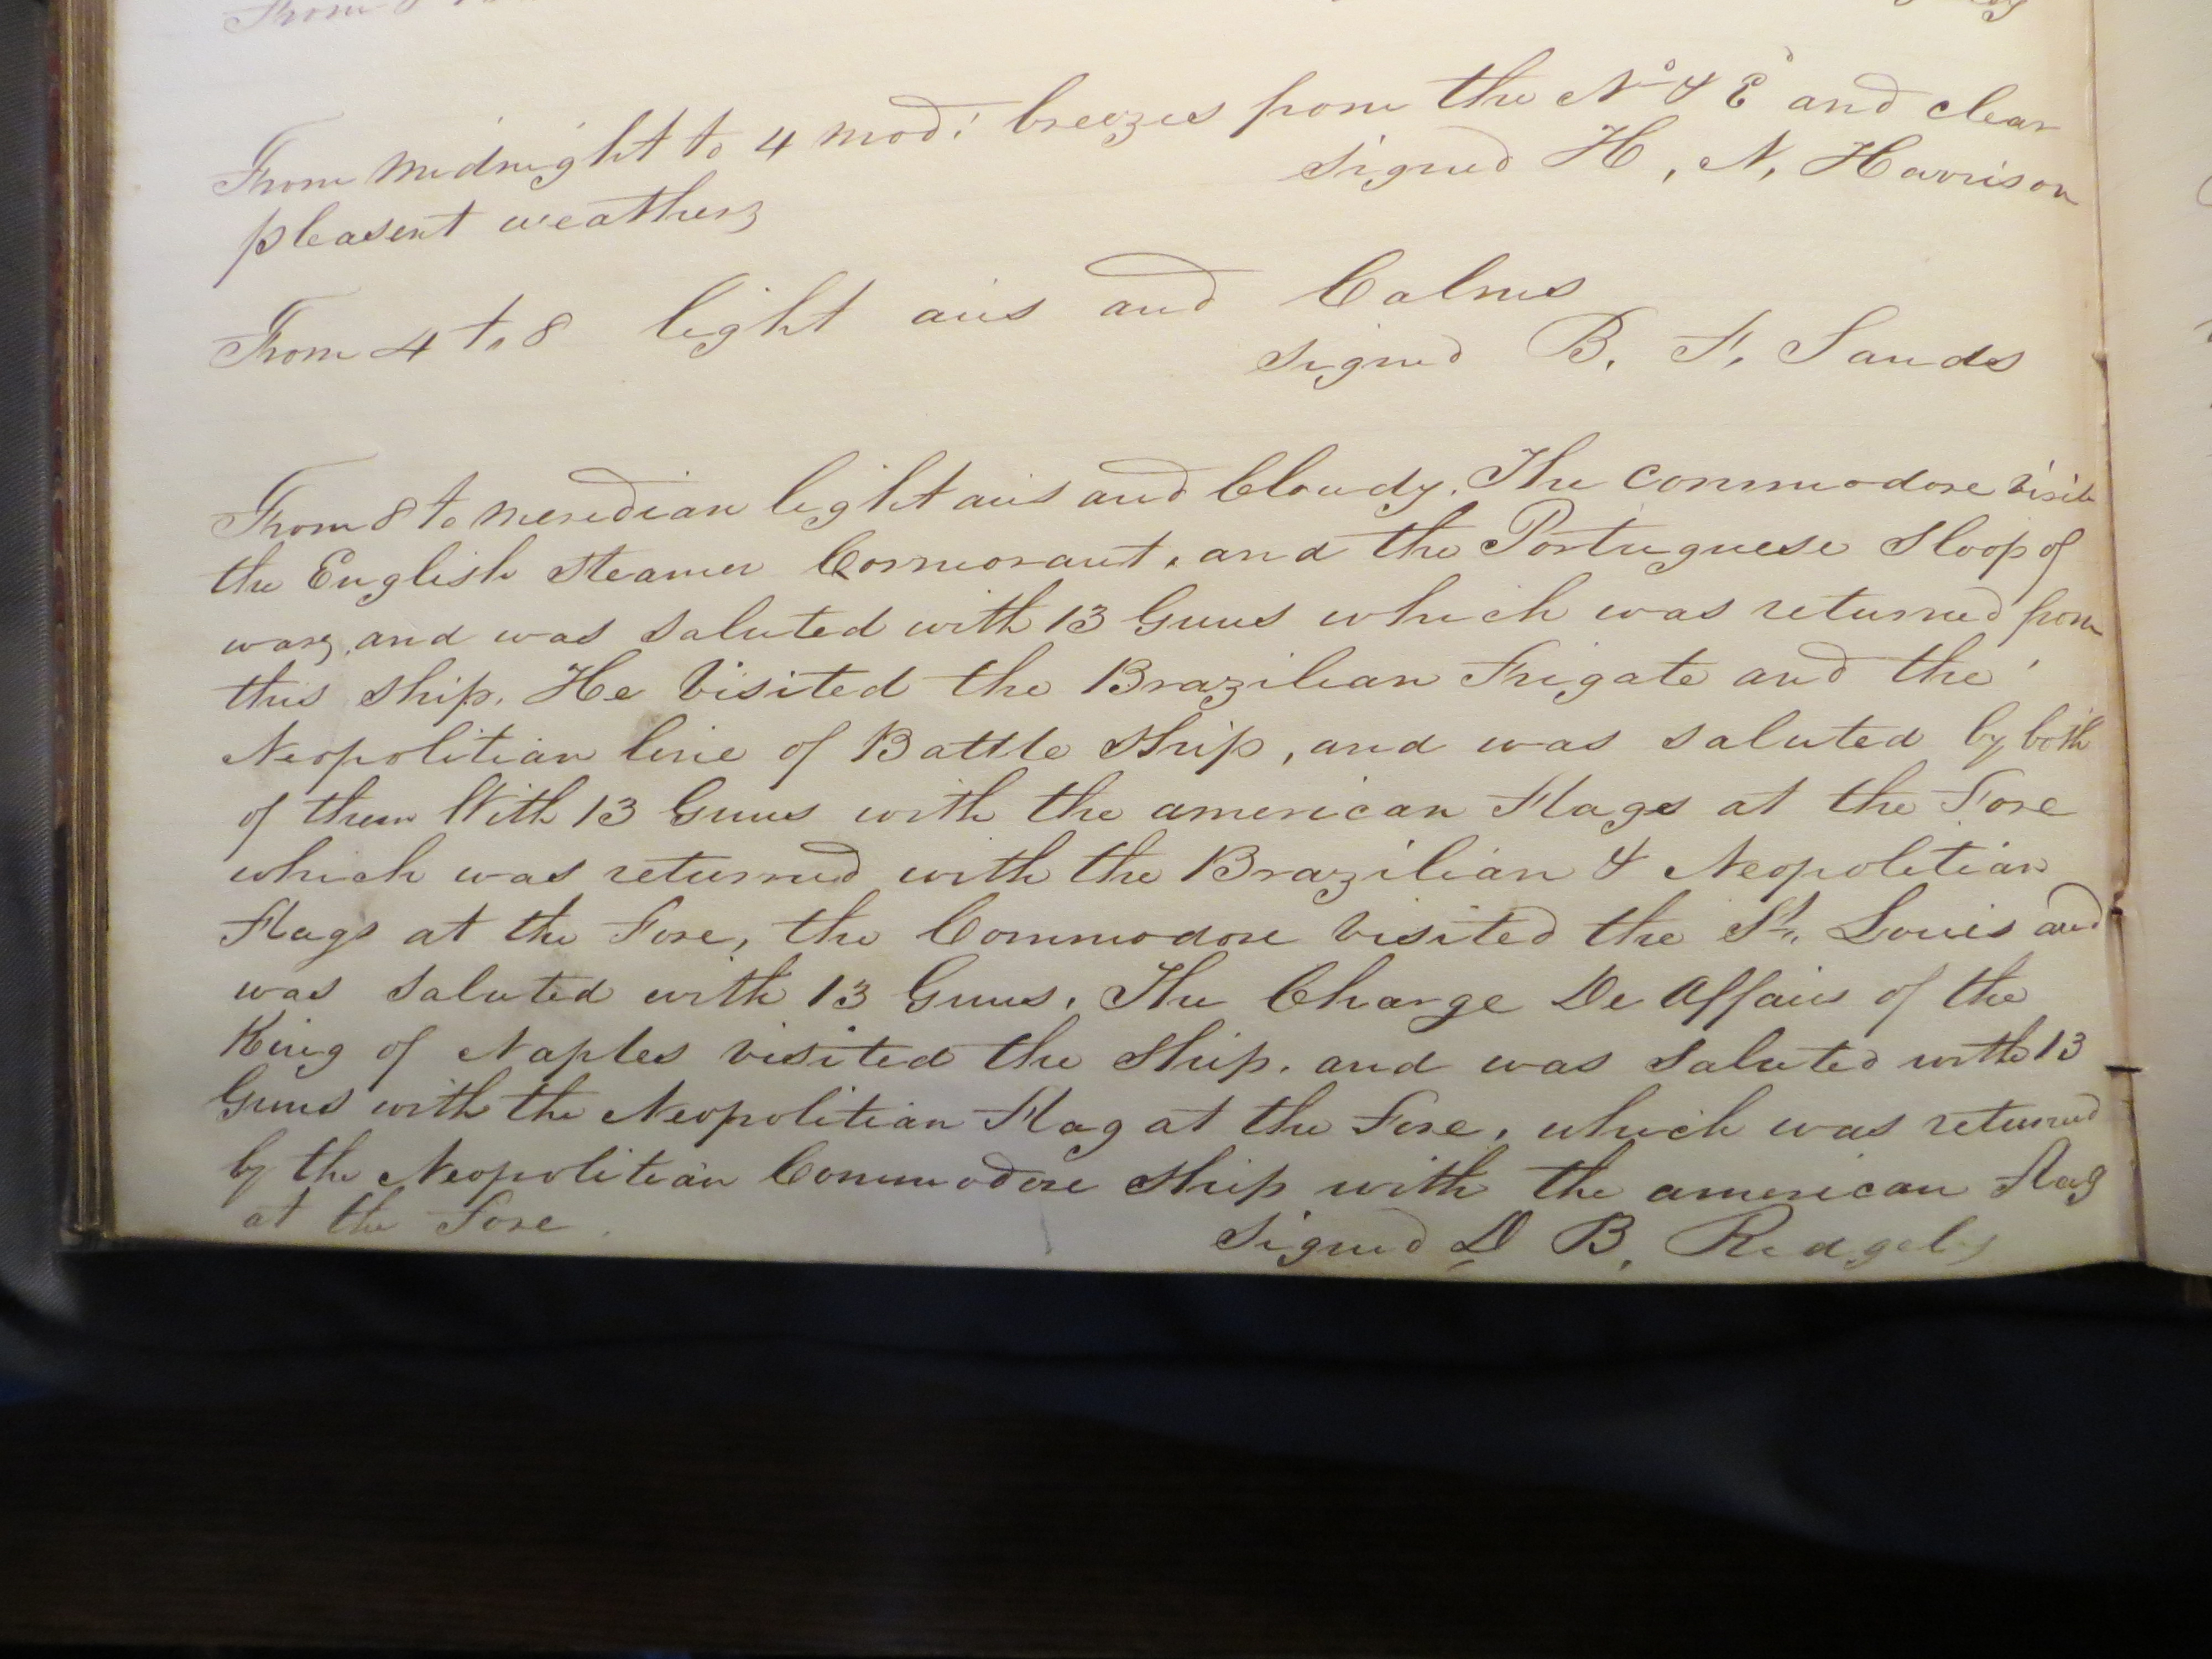 From midnight to 4 mod. breezes from the Nº & Eº and clear
pleasent weather,
signed H, N, Harrison
From 4 to 8 light airs and Calms
signed B. F. Sands
From 8 to meredian light airs and Cloudy. The commodore visite
the English Steamer Cormorant, and the Portuguese Sloop of
war, and was saluted with 13 Guns which was returned from
this ship. He Visited the Brazilean Frigate and the
Neopolitian line of Battle Ship, and was saluted by both
of them With 13 Guns with the american Flags at the Fore
which was returned with the Brazilian & Neopolitian
Flags at the Fore, the Commodore Visited the St. Louis and
was saluted with 13 Guns. The Charge De Affairs of the
King of Naples visited the Ship. and was saluted with 13
Guns with the Neopolitian Flag at the Fore, which was returned
by the Neopolitian Commodore Ship with the american Flag
at the Fore
Signed D B, Redgely